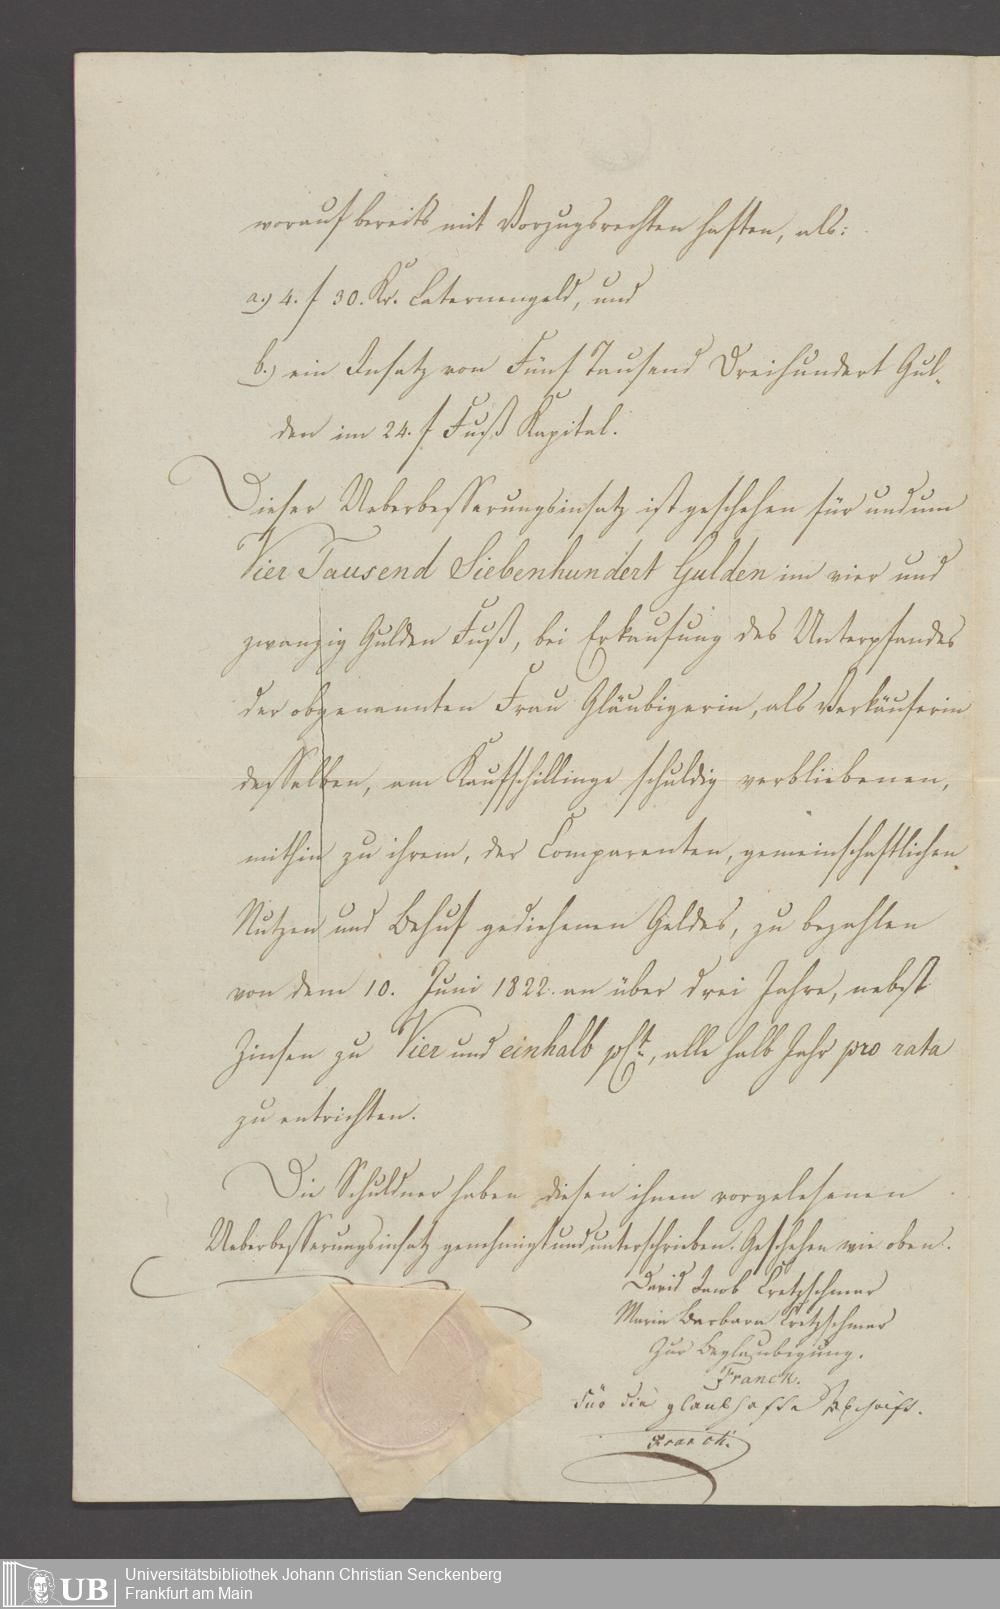 worauf bereits mit Vorzugsrechten haften, als:
a.) 4. f 30. Kr. Laternengeld, und
b.) ein Insatz von Fünf Tausend Dreihundert Gul-
den im 24. f Fuß Kapital.
Dieser Ueberbesserungsinsatz ist geschehen für und um
Vier Tausend Siebenhundert Gulden im vier und
zwanzig Gulden Fuß, bei Erkaufung des Unterpfandes
der obgenannten Frau Gläubigerin, als Verkäuferin
desselben, am Kaufschillinge schuldig verbliebenen,
mithin zu ihrem, der Comparenten, gemeinschaftlichen
Nutzen und Behuf gediehenen Geldes, zu bezahlen
von dem 10. Juni 1822. an über drei Jahre, nebst
Zinsen zu Vier und einhalb pCt., alle halb Jahr pro rata
zu entrichten.
Die Schuldner haben diesen ihnen vorgelesenen
Ueberbesserungsinsatz genehmigt und unterschrieben. Geschehen wie oben.
David Jacob Kretzschmar
Maria Barbara Kretzschmar
Zur Beglaubigung.
Franck.
Für die glaubhafte Abschrift.
Franck.
UB Universitätsbibliothek Johann Christian Senckenberg
Frankfurt am Main